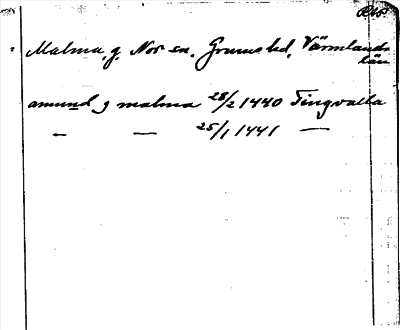 Malma, g. Nor sn. Grums hd, Värmlands
län
amund g malma 28/2 1440 Tingvalla
— — 25/1 1441 —